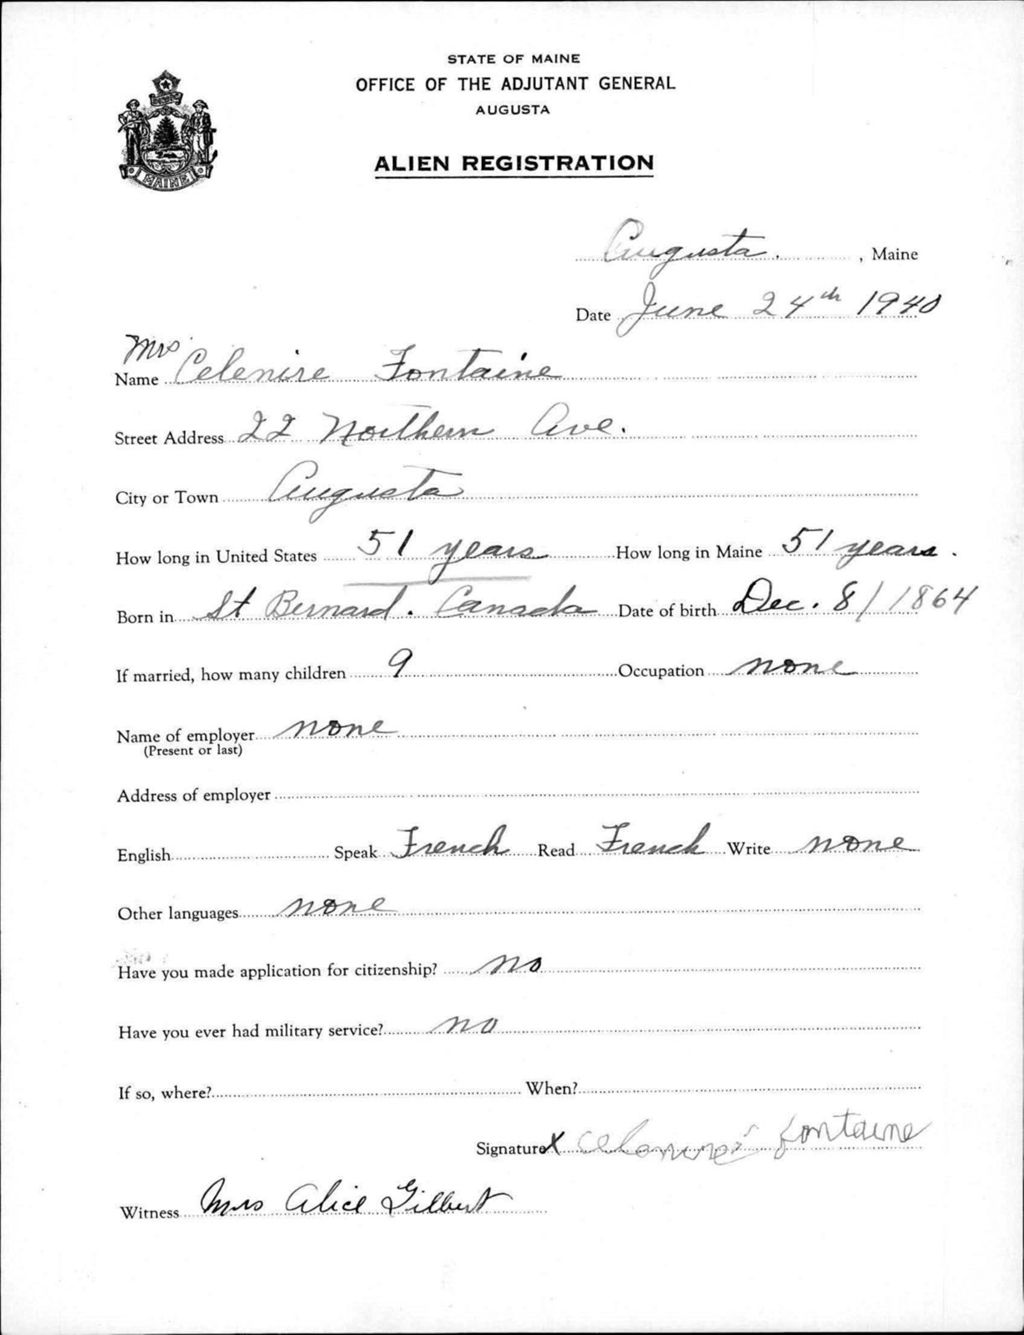 STATE OF MAINE
OFFICE OF THE ADJUTANT GENERAL
AUGUSTA
ALIEN REGISTRATION
MAINE
Augusta, Maine
Date June 24th 1940
Mrs
Name Celenire Fontaine
Street Address 22 Northern Ave.
City or Town Augusta
How long in United States 51 years How long in Maine 51 years.
Born in St Bernard. Canada Date of birth Dec. 8/1864
If married, how many children 9 Occupation none
Name of employer none
(Present or last)
Address of employer
English Speak French Read French Write none
Other languages none
Have you made application for citizenship? no
Have you ever had military service? no
If so, where? When?
Signature X Celenire Fontaine
Witness Mrs Alice Gilbert